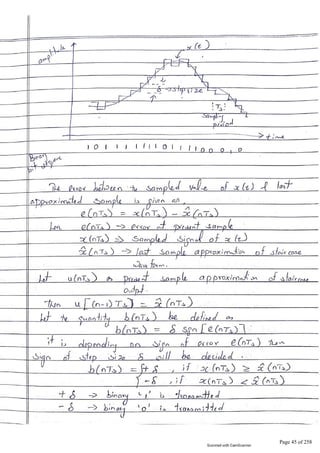 amplitude
x(t)
δ → step size
Ts
sampling
period
→ time
Binary
bit sequence
The error between the sampled value of x(t) & last
approximated sample is given as
e(nTs) = x(nTs) - x̂(nTs)
e(nTs) → error at present sample
x(nTs) → sampled signal of x(t)
x̂(nTs) → last sample approximation of staircase
wave form.
Let u(nTs) as present sample approximation of staircase
output.
Then u[(n-1)Ts] = x̂(nTs)
Let the quantity b(nTs) be defined as
b(nTs) = δ sgn[e(nTs)]
it is depending on sign of error e(nTs) then
sign of step size δ will be decided.
b(nTs) = {+δ , if x(nTs) ≥ x̂(nTs)
{-δ , if x(nTs) < x̂(nTs)
+δ → binary '1' is transmitted
-δ → binary '0' is transmitted
Scanned with CamScanner
Page 45 of 258